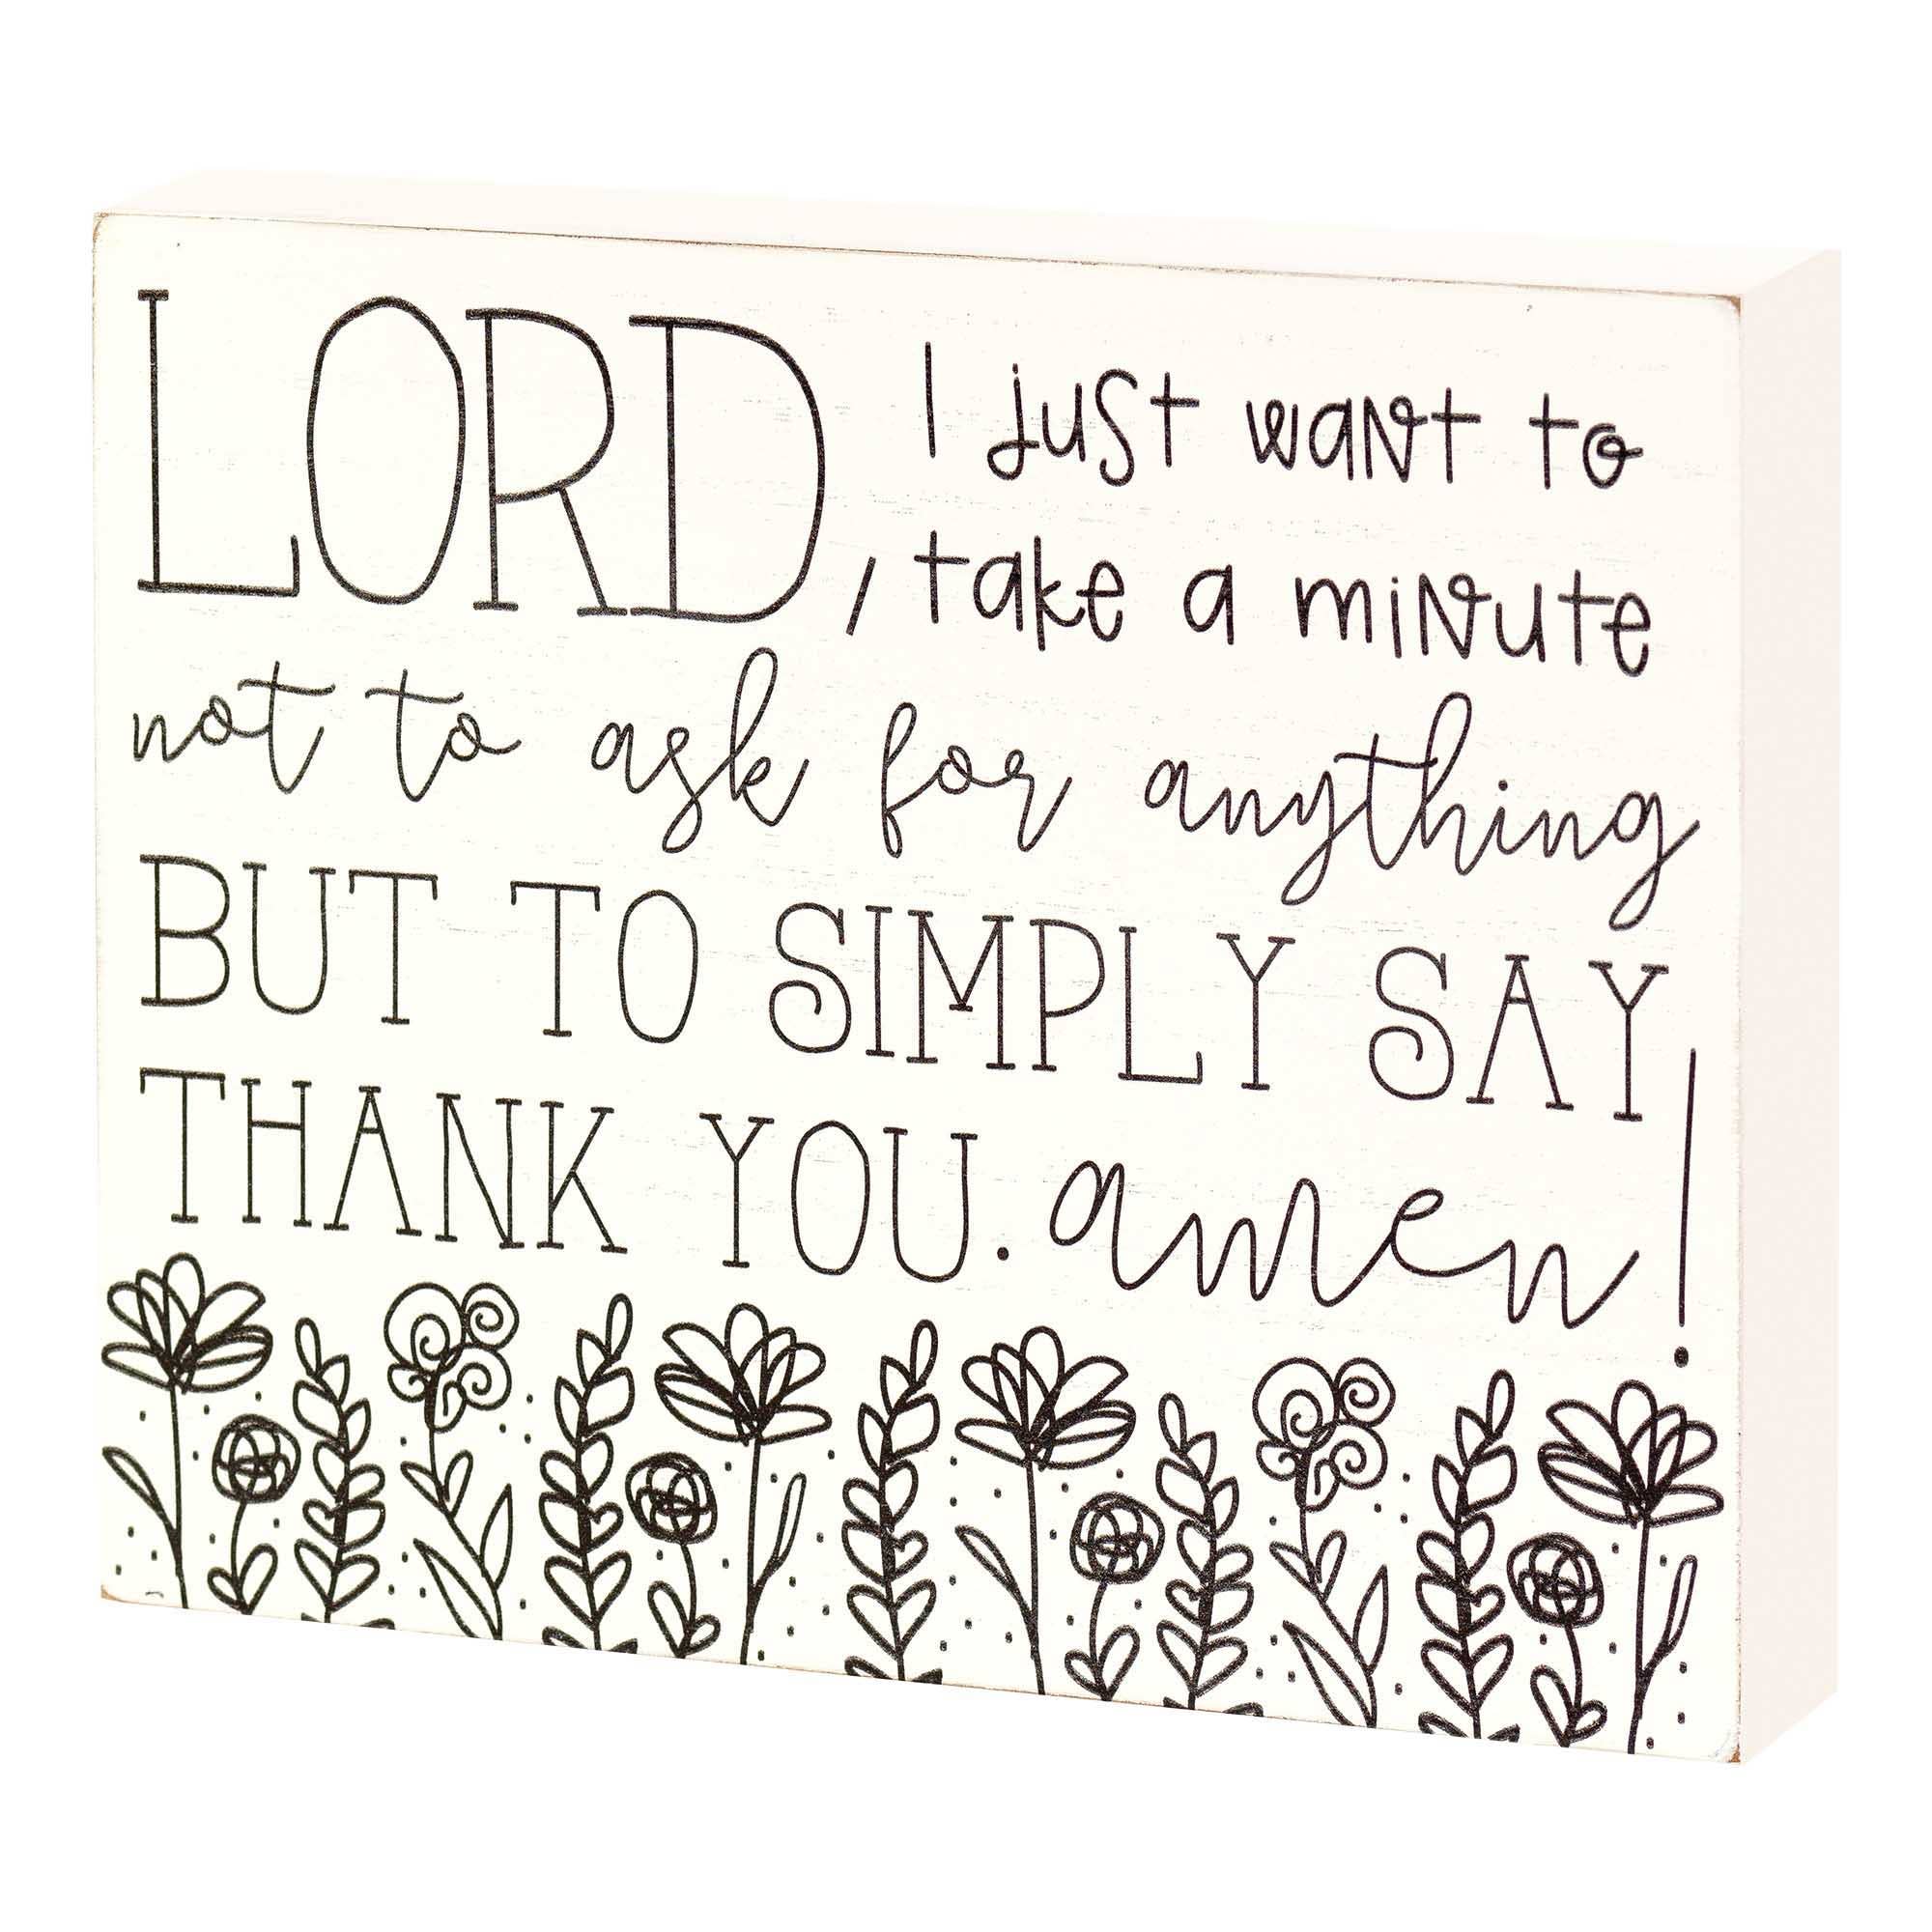 LORD, I just want to
take a minute
not to ask for anything
BUT TO SIMPLY SAY
THANK YOU. amen!